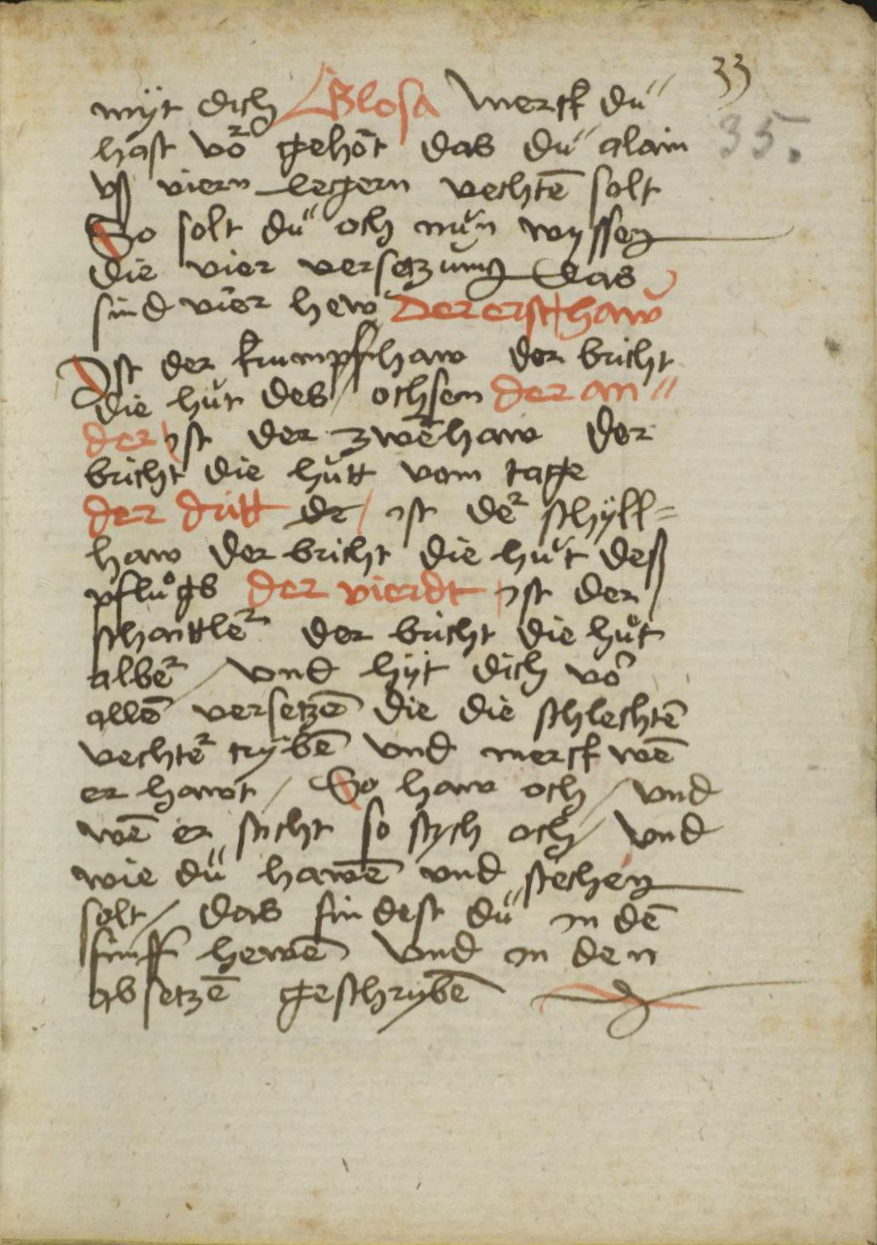 33
35.
müt dich Glosa Merck du
hast vor gehört das du alain
vß viern legern vechtē solt
So solt du och nün wyssen
die vier versetzung Das
sind vier hew Der erst haw
Ist der krumphaw der bricht
die hůt des ochsen der an
der ist der zwēhaw der
bricht die hůtt vom tage
der dritt der ist der schyll=
haw der bricht die hůt deß
pflůgs der vierdt ist der
schaittler der bricht die hůt
alber / vnd hüt dich vor
allē versetzē die die schlechtē
vechter trybē vnd merck wē
er hawt / So haw och / vnd
wē er sticht so stych och / vnd
wie du hawē vnd stechen
solt / das findest du in dē
fünff hewē vnd in den
absetzē geschrybē